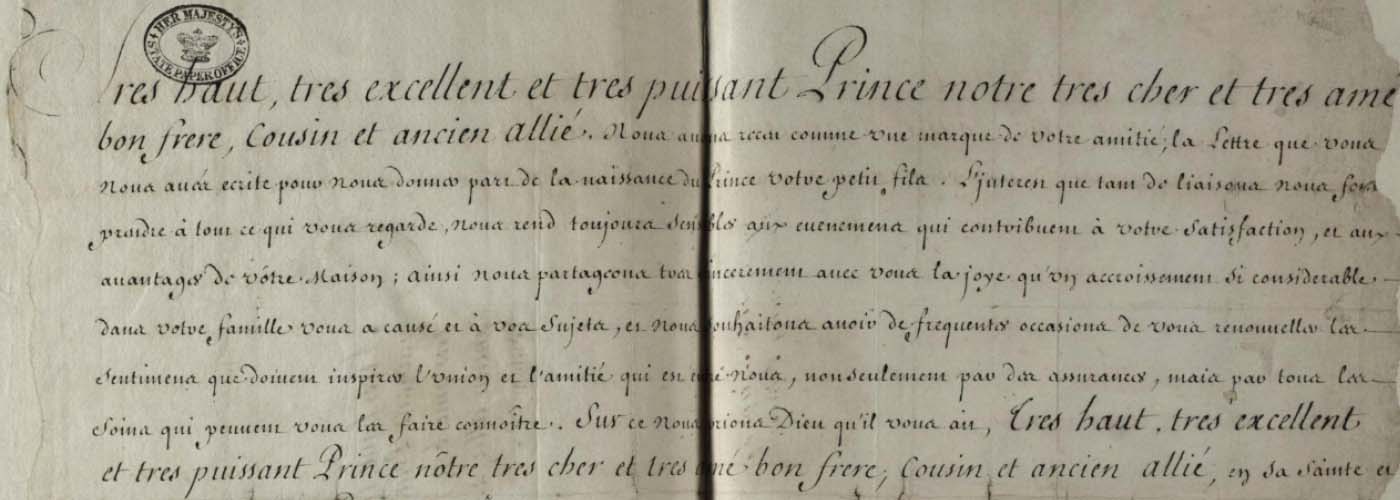 HER MAJESTY'S STATE PAPER OFFICE
Tres haut, tres excellent et tres puissant Prince notre tres cher et tres amé
bon frere, Cousin et ancien allié. Nous avons receu comme une marque de votre amitié, la Lettre que vous
Nous avés ecrite pour Nous donner part de la naissance du Prince votre petit fils. L'interest que tant de liaisons nous font
prendre à tout ce qui vous regarde, nous rend toujours sensibles aux evenemens qui contribuent à votre satisfaction, et aux
avantages de vôtre Maison; ainsi nous partageons tres sincerement avec vous la joye qu'un accroissement si considerable
dans votre famille vous a causé et à vos sujets, et nous souhaitons avoir de frequentes occasions de vous renouveller les
sentimens que doivent inspirer l'union et l'amitié qui est entre Nous, non seulement par des assurances, mais par tous les
soins qui peuvent vous les faire connoître. Sur ce Nous prions Dieu qu'il vous ait, Tres haut, tres excellent
et tres puissant Prince nôtre tres cher et tres amé bon frere, Cousin et ancien allié, en sa sainte et